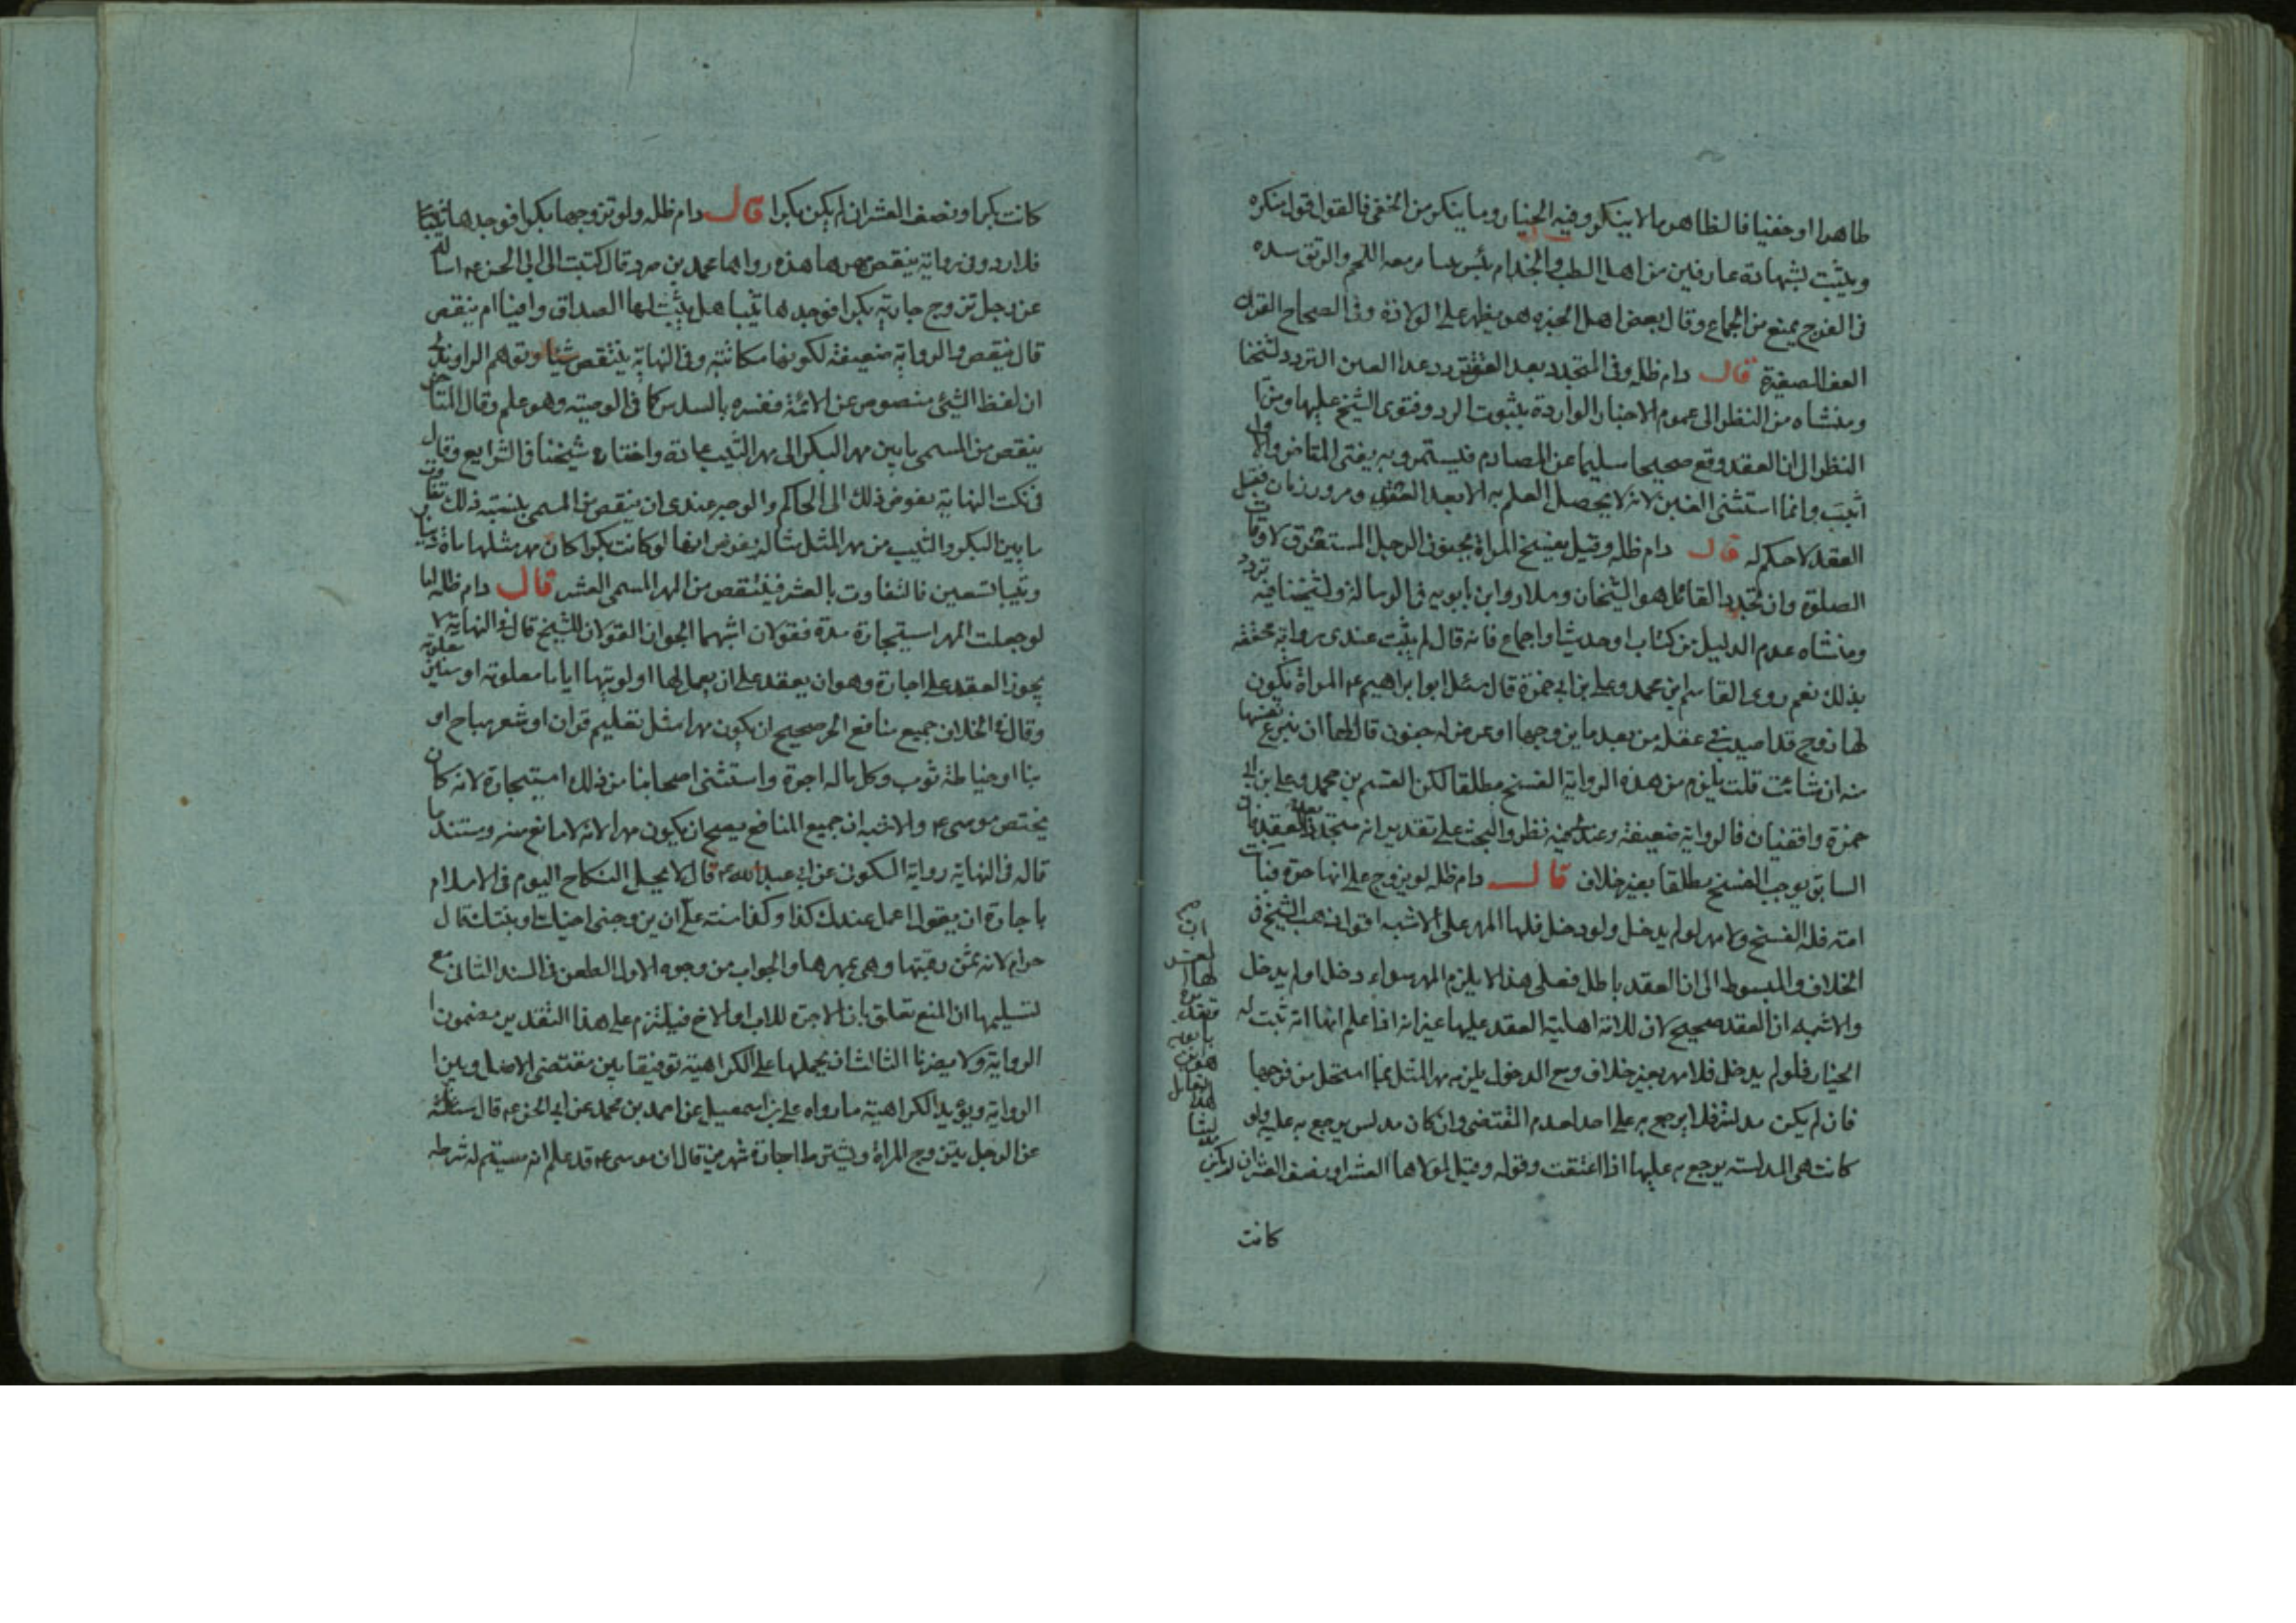 ظاهرا او خفيا فالظاهر ما لا ينكر وفيه الخيار وما ينكر من الخفى فالقول قول منكره
ويثبت بشهادة عارفين من اهل الطب والجذام معه اللحم والرتق سده
فى الفرج يمنع من الجماع وقال بعض اهل الخبره هو يظهر على الولادة وفى الصحاح القرن
العفل الصغيرة قال دام ظله وفى المتجدد بعد العقد تردد عدا العنن التردد لشيخنا
ومنشاه من النظر الى عموم الاخبار الواردة بثبوت الرد وفتوى الشيخ عليها ومن
النظر الى ان العقد وقع صحيحا سليما عن المصادم فيستمر وبه يفتى المتاخر والاول
اثبت وانما استثنى العنين لانه لا يحصل العلم به الا بعد العقد ومرور زمان فقبل
العقد لا حكم له قال دام ظله وقيل بفسخ المراة بجنون الرجل المستغرق لاوقات
الصلوة وان تجدد القائل هو الشيخان وسلار وابن بابويه فى الرسالة ولشيخنا فيه تردد
ومنشاه عدم الدليل من كتاب او حديث او اجماع فانه قال لم يثبت عندى رواية محققه
بذلك نعم روى القاسم ابن محمد وعلى بن ابى حمزة قال سئل ابو ابراهيم ع المراة تكون
لها زوج قد اصيب فى عقله من بعد ما تزوجها او عرض له جنون قال لها ان تنزع نفسها
منه ان شائت قلت يلزم من هذه الرواية الفسخ مطلقا لكن القسم بن محمد وعلى بن ابى
حمزة واقفيان فالرواية ضعيفة وعند فيه نظر والبحث على تقدير انه متجدد بعد العقد فان
السابق يوجب الفسخ مطلقا بغير خلاف قال دام ظله لو تزوج على انها حرة فبانت
امته فله الفسخ ولا مهر لو لم يدخل ولو دخل فلها المهر على الاشبه اقول ذهب الشيخ فى
الخلاف والمبسوط الى ان العقد باطل فعلى هذا لا يلزم المهر سواء دخل او لم يدخل
والاشبه ان العقد صحيح لان للامة اهلية العقد عليها غير انه اذا علم انها امة ثبت له
الخيار فلو لم يدخل فلا مهر بغير خلاف ومع الدخول يلزمه مهر المثل بما استحل من فرجها
فان لم يكن مدلس فلا يرجع به على احد لعدم المقتضى وان كان مدلس يرجع به عليه ولو
كانت هى المدلسة يرجع به عليها اذا اعتقت وقوله وقيل لمولاها العشر او نصف العشر ان لم يكن
كانت
كانت بكرا ونصف العشر ان لم يكن بكرا قال دام ظله ولو تزوجها بكرا فوجدها ثيبا
فلا رد وفى رواية ينقص مهرها هذه رواها محمد بن جزك قال كتبت الى ابى الحسن ع اساله
عن رجل تزوج جارية بكرا فوجدها ثيبا هل يثبت لها الصداق وافيا ام ينقص
قال ينقص والرواية ضعيفة لكونها مكاتبة وفى النهاية ينتقص شيئا وتوهم الراوندى
ان لفظ الشيئ منصوص عن الائمة ففسره بالسدس كما فى الوصية وهو علم وقال المتاخر
ينقص من المسمى ما بين مهر البكر الى مهر الثيب عادة واختاره شيخنا فى الشرايع وقال
فى نكت النهاية يفوض ذلك الى الحاكم والوجه عندى ان ينقص من المسمى بنسبة ذلك تفاوت
ما بين البكر والثيب من مهر المثل مثاله يفوض انها لو كانت بكرا كان مهر مثلها ماة دينار
وثيبا تسعين فالتفاوت بالعشر فينتقص من المهر المسمى العشر قال دام ظله اما
لو جعلت المهر استيجارة مدة فقولان اشبهما الجواز القولان للشيخ قال فى النهاية لا
يجوز العقد على اجارة وهو ان يعقد على ان يعمل لها او لوليها اياما معلومة او سنين معلومة
وقال فى الخلاف جميع منافع الحر صحيح ان يكون مهرا مثل تعليم قران او شعر مباح او
بنا او خياطة ثوب وكل ما له اجرة واستثنى اصحابنا من ذلك استيجارة لانه كان
يختص موسى ع والاشبه ان جميع المنافع يصح ان يكون مهرا لانه لا مانع منه ومستند ما
قاله فى النهاية رواية السكونى عن ابى عبد الله ع قال لا يحل النكاح اليوم فى الاسلام
باجارة ان يقول اعمل عندك كذا وكذا سنة على ان يزوجنى اختك او بنتك قال
حرام لانه ثمن رقبتها وهى بمهرها والجواب من وجوه الاول الطعن فى السند الثانى مع
تسليمها ان المنع تعلق بان الاجرة للاب او الاخ فيلتزم على هذا التقدير مضمون
الرواية ولا يضرنا الثالث ان يحملها على الكراهية توفيقا بين مقتضى الاصل وبين
الرواية ويؤيد الكراهية ما رواه على بن اسمعيل عن احمد بن محمد عن ابى الحسن ع قال سئلته
عن الرجل يتزوج المراة ويشترط اجارة شهرين قال ان موسى ع قد علم انه سيتم له شرطه